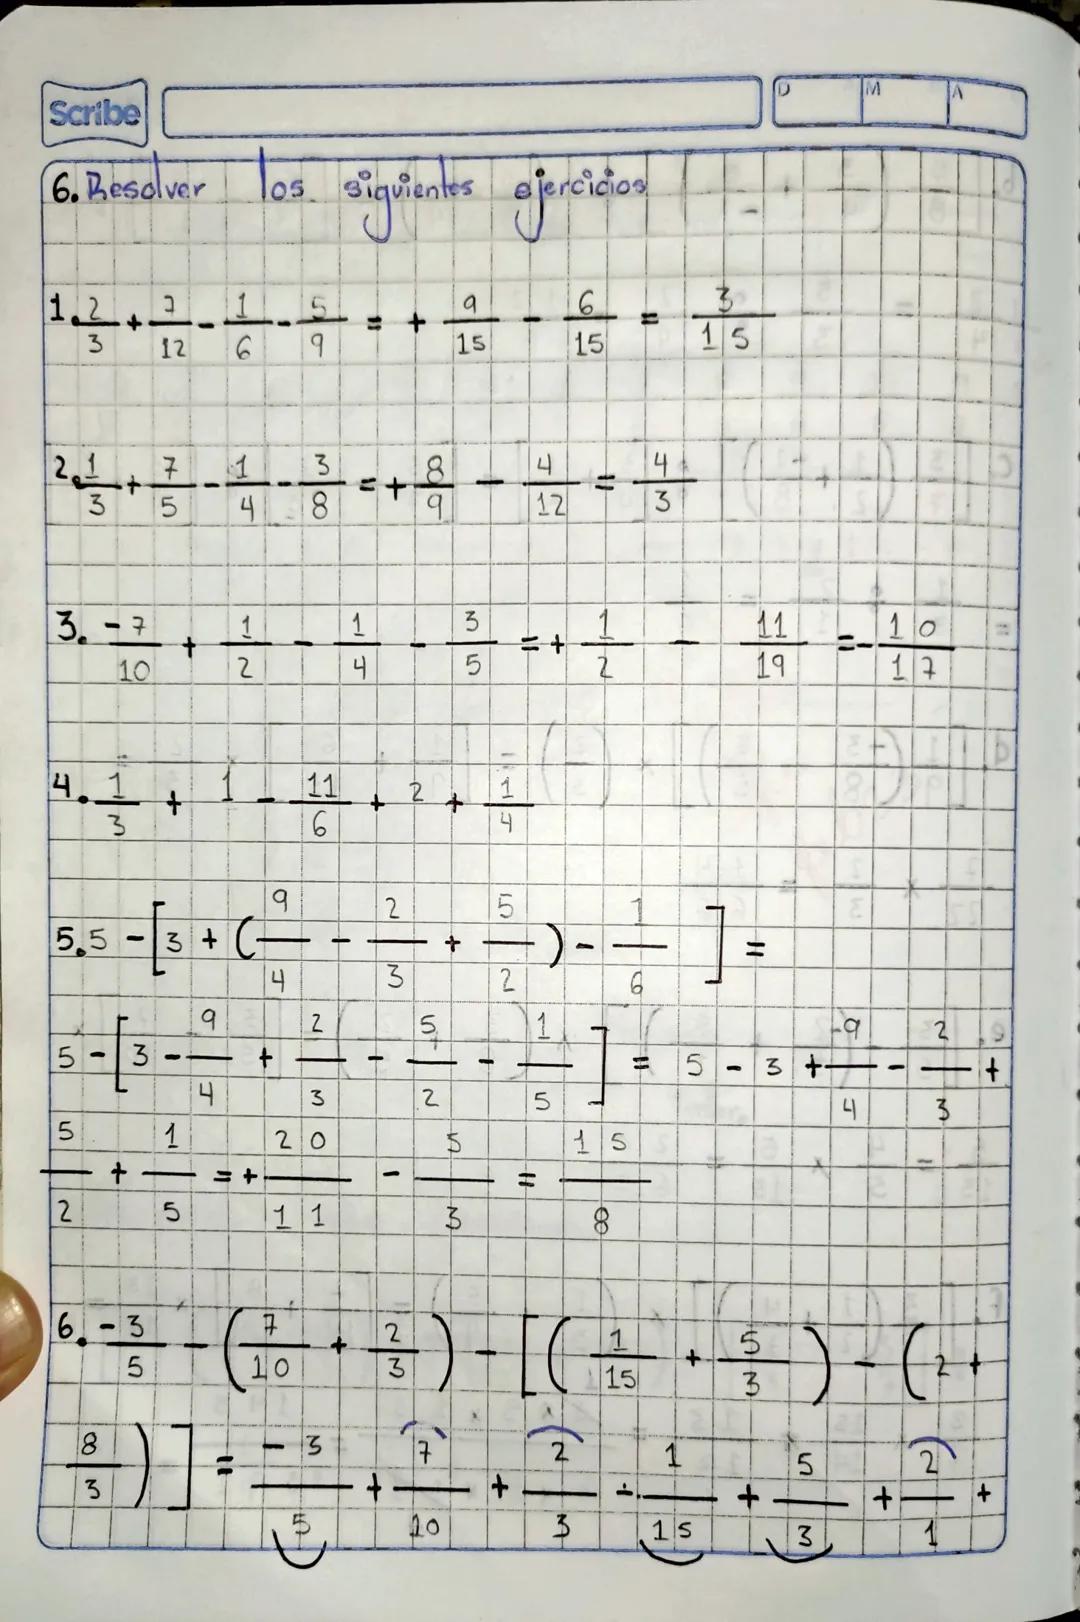 Scribe
D M A
6. Resolver los siguientes ejercicios
1. 2/3 + 7/12 - 1/6 - 5/9 = + 9/15 - 6/15 = 3/15
2. 1/3 + 7/5 - 1/4 - 3/8 = + 8/9 - 4/12 = 4/3
3. -7/10 + 1/2 - 1/4 - 3/5 = + 1/2 - 11/19 = - 10/17
4. 1/3 + 1 - 11/6 + 2 + 1/4
5. 5 - [3 + (9/4 - 2/3 + 5/2) - 1/6] =
5 - [3 - 9/4 + 2/3 - 5/2 - 1/5] = 5 - 3 + -9/4 - 2/3 +
5/2 + 1/5 = + 20/11 - 5/3 = 15/8
6. -3/5 - (7/10 + 2/3) - [(1/15 + 5/3) - (2 +
8/3)] = -3/5 + 7/10 + 2/3 - 1/15 + 5/3 + 2/1 +